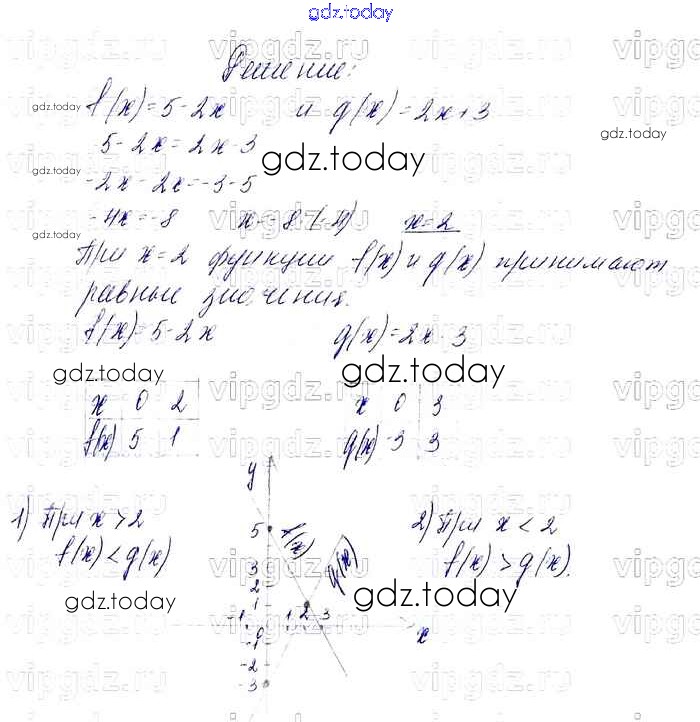 gdz.today
Решение:
f(x) = 5 - 2x и g(x) = 2x + 3
5 - 2x = 2x - 3
gdz.today
-2x - 2x = -3 - 5
-4x = -8 x = -8 : (-4) x = 2
При x = 2 функции f(x) и g(x) принимают
равные значения.
f(x) = 5 - 2x g(x) = 2x - 3
gdz.today gdz.today
x 0 2 x 0 3
f(x) 5 1 g(x) -3 3
1) При x > 2 2) При x < 2
f(x) < g(x) f(x) > g(x).
gdz.today gdz.today
y
5 f(x)
3 g(x)
2
1
-1 0 1 2 3 x
-1
-2
-3